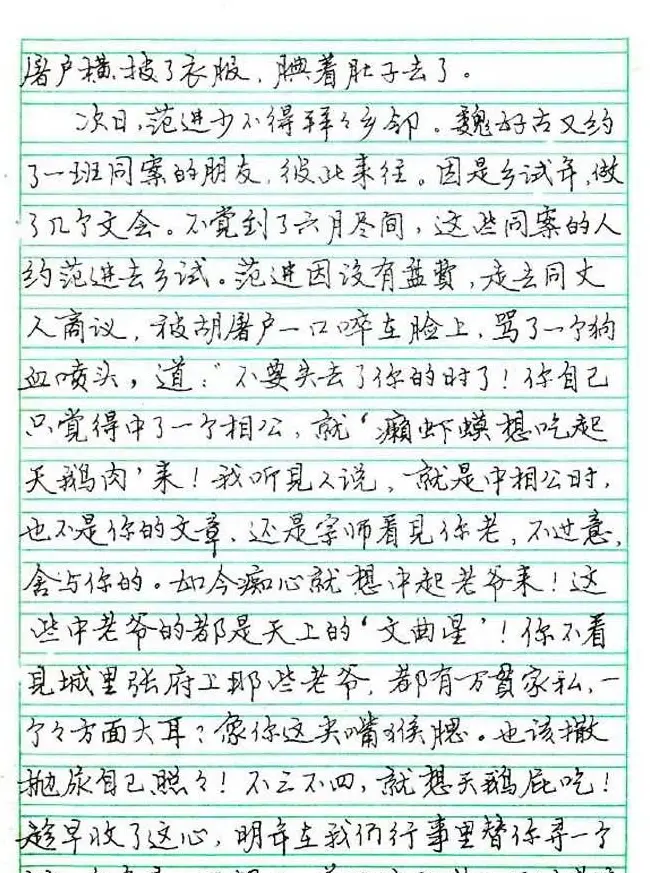 屠户横披了衣服，腆着肚子去了。
次日，范进少不得拜々乡邻。魏好古又约
了一班同案的朋友，彼此来往。因是乡试年，做
了几个文会。不觉到了六月尽间，这些同案的人
约范进去乡试。范进因没有盘费，走去同丈
人商议，被胡屠户一口啐在脸上，骂了一个狗
血喷头，道：“不要失去了你的时了！你自己
只觉得中了一个相公，就‘癞虾蟆想吃起
天鹅肉’来！我听见人说，就是中相公时，
也不是你的文章，还是宗师看见你老，不过意，
舍与你的。如今痴心就想中起老爷来！这
些中老爷的都是天上的‘文曲星’！你不看
见城里张府上那些老爷，都有万贯家私，一
个々方面大耳？像你这尖嘴猴腮。也该撒
抛尿自己照々！不三不四，就想天鹅屁吃！
趁早收了这心，明年在我们行事里替你寻一个